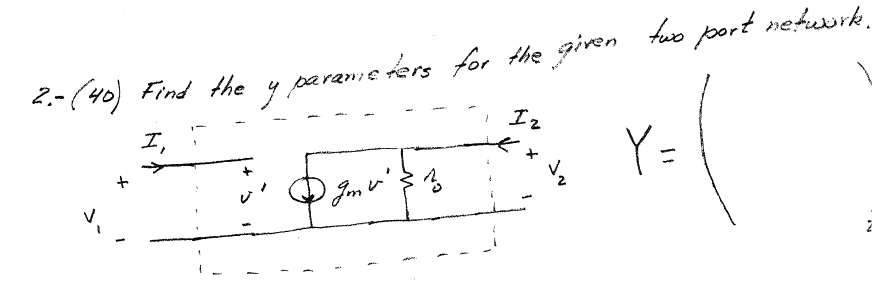 2.- (40) Find the y parameters for the given two port network.
I₁
I₂
+
+
+
v'
gₘ v'
r₀
V₂
Y = (
V₁
-
-
-